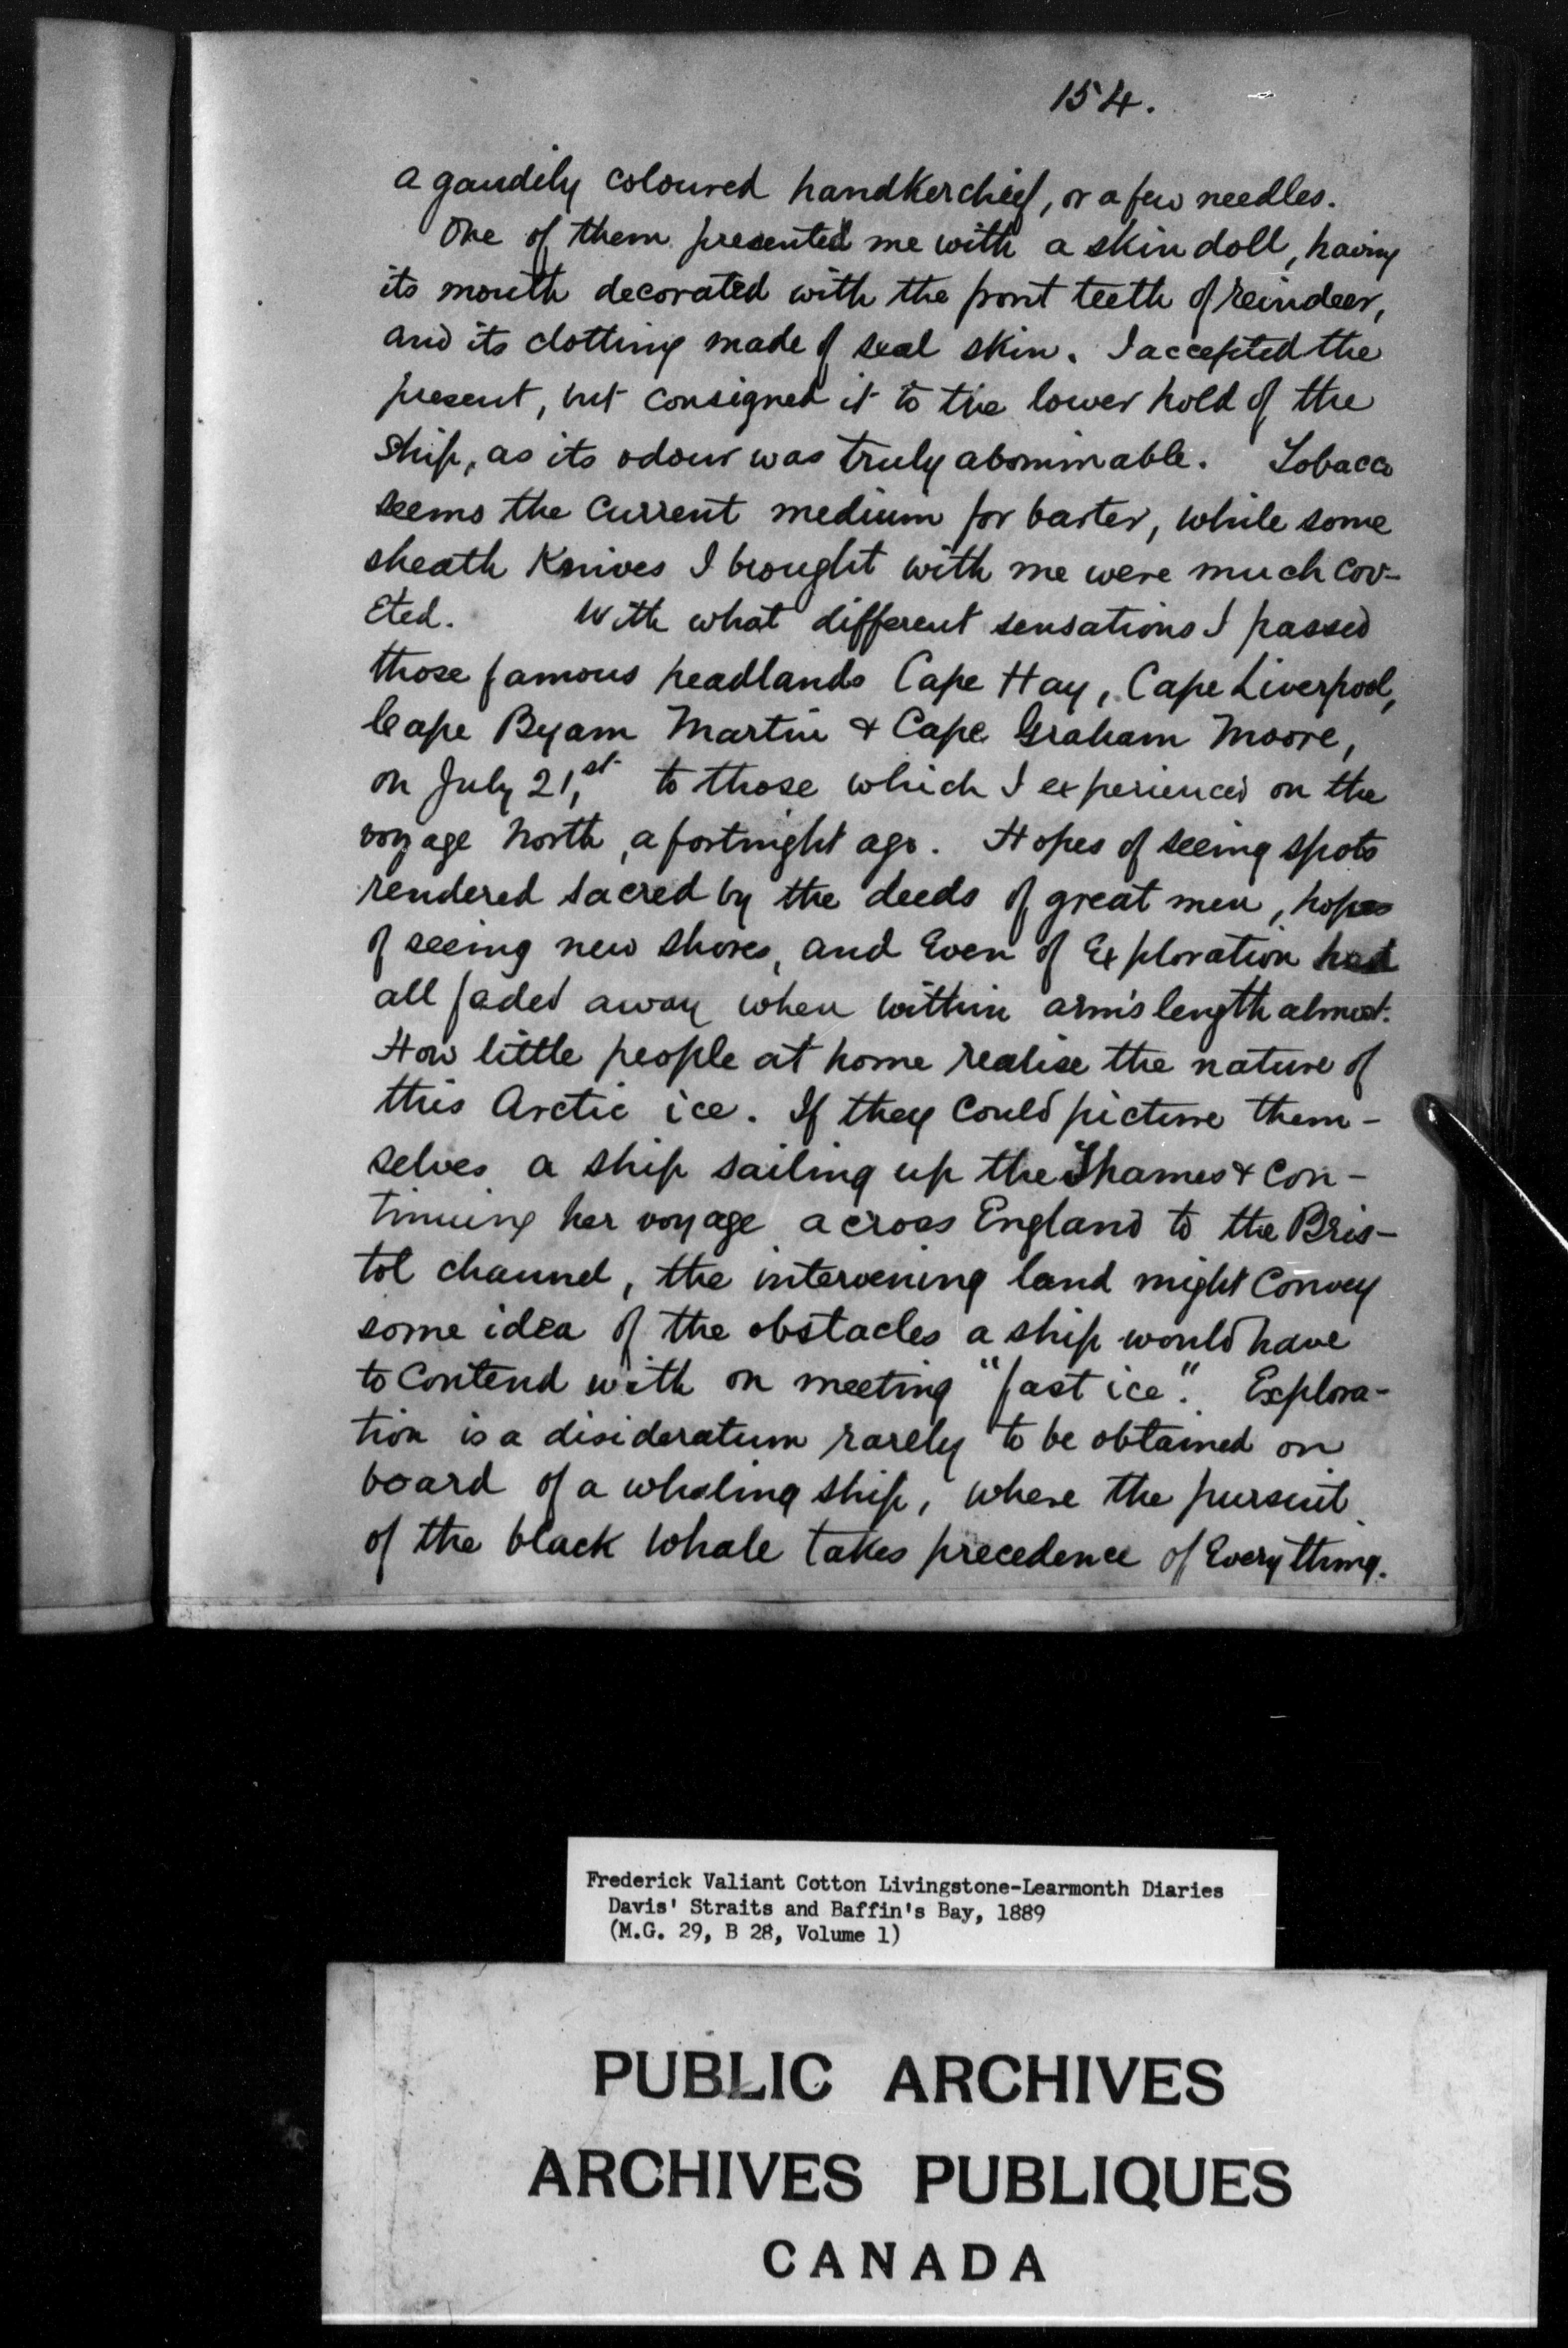 154.
a gaudily coloured handkerchief, or a few needles.
One of them presented me with a skin doll, having
its mouth decorated with the front teeth of reindeer,
and its clothing made of seal skin. I accepted the
present, but consigned it to the lower hold of the
ship, as its odour was truly abominable. Tobacco
seems the current medium for barter, while some
sheath knives I brought with me were much cov-
eted. With what different sensations I passed
those famous headlands Cape Hay, Cape Liverpool,
Cape Byam Martin & Cape Graham Moore,
on July 21,st to those which I experienced on the
voyage north, a fortnight ago. Hopes of seeing spots
rendered sacred by the deeds of great men, hopes
of seeing new shores, and even of exploration had
all faded away when within arm's length almost.
How little people at home realise the nature of
this Arctic ice. If they could picture them-
selves a ship sailing up the Thames & con-
tinuing her voyage across England to the Bris-
tol channel, the intervening land might convey
some idea of the obstacles a ship would have
to contend with on meeting "fast ice". Explora-
tion is a disideratum rarely to be obtained on
board of a whaling ship, where the pursuit
of the black whale takes precedence of everything.
Frederick Valiant Cotton Livingstone-Learmonth Diaries
Davis' Straits and Baffin's Bay, 1889
(M.G. 29, B 28, Volume 1)
PUBLIC ARCHIVES
ARCHIVES PUBLIQUES
CANADA